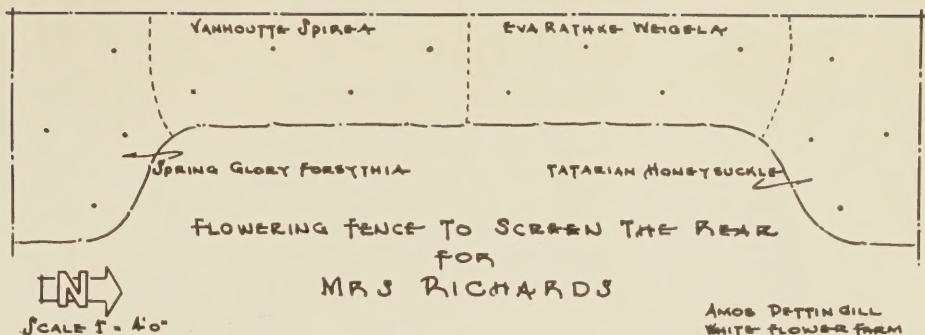 VANHOUTTE SPIREA
EVA RATHKE WEIGELA
SPRING GLORY FORSYTHIA
TATARIAN HONEYSUCKLE
FLOWERING FENCE TO SCREEN THE REAR
FOR
MRS RICHARDS
N
SCALE 1" = 4'0"
AMOS PETTINGILL
WHITE FLOWER FARM